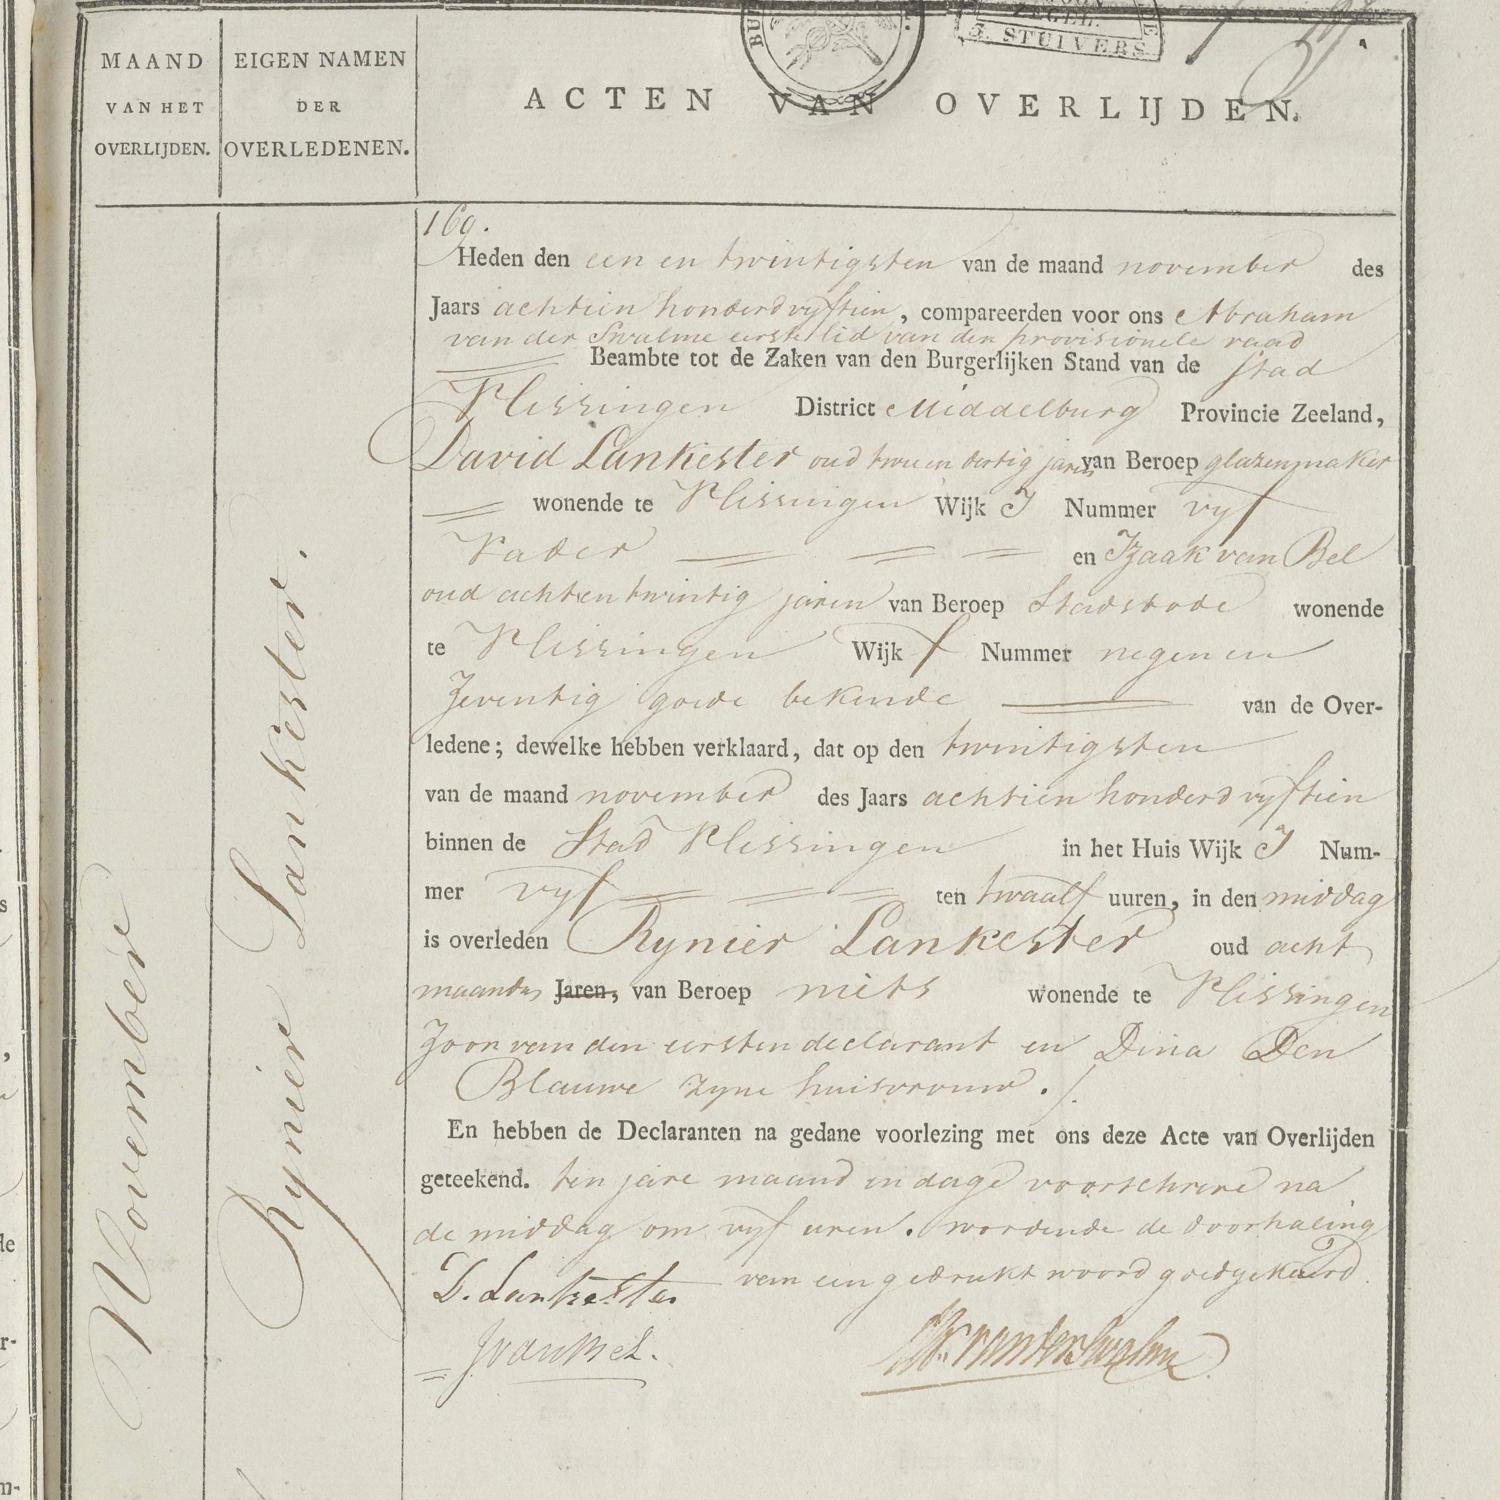 MAAND
VAN HET
OVERLIJDEN.
EIGEN NAMEN
DER
OVERLEDENEN.
ZEGEL.
3. STUIVERS
ACTEN VAN OVERLIJDEN.
November
Rynier Lankester.
169.
Heden den een en twintigsten van de maand november des
Jaars achtien honderd vyftien, compareerden voor ons Abraham
van der Swalme eerste lid van den provisionele raad
Beambte tot de Zaken van den Burgerlijken Stand van de Stad
Vlissingen District Middelburg Provincie Zeeland,
David Lankester oud twee en dertig jaren van Beroep glazenmaker
wonende te Vlissingen Wijk I Nummer vyf
Vader en Izaak van Bel
oud acht en twintig jaren van Beroep Stadsbode wonende
te Vlissingen Wijk f Nummer negen en
Zeventig goede bekende van de Over-
ledene; dewelke hebben verklaard, dat op den twintigsten
van de maand november des Jaars achtien honderd vyftien
binnen de Stad Vlissingen in het Huis Wijk I Num-
mer vyf ten twaalf uuren, in den middag
is overleden Rynier Lankester oud acht
maanden Jaren, van Beroep niets wonende te Vlissingen
Zoon van den eersten declarant en Dina Den
Blauwe zyne huisvrouw.
En hebben de Declaranten na gedane voorlezing met ons deze Acte van Overlijden
geteekend. ten jare maand en dage voorschreve na
de middag om vyf uren. wordende de doorhaling
van een gedrukt woord goedgekeurd.
D. Lankester
JvanBel.
Ab. van der Swalme